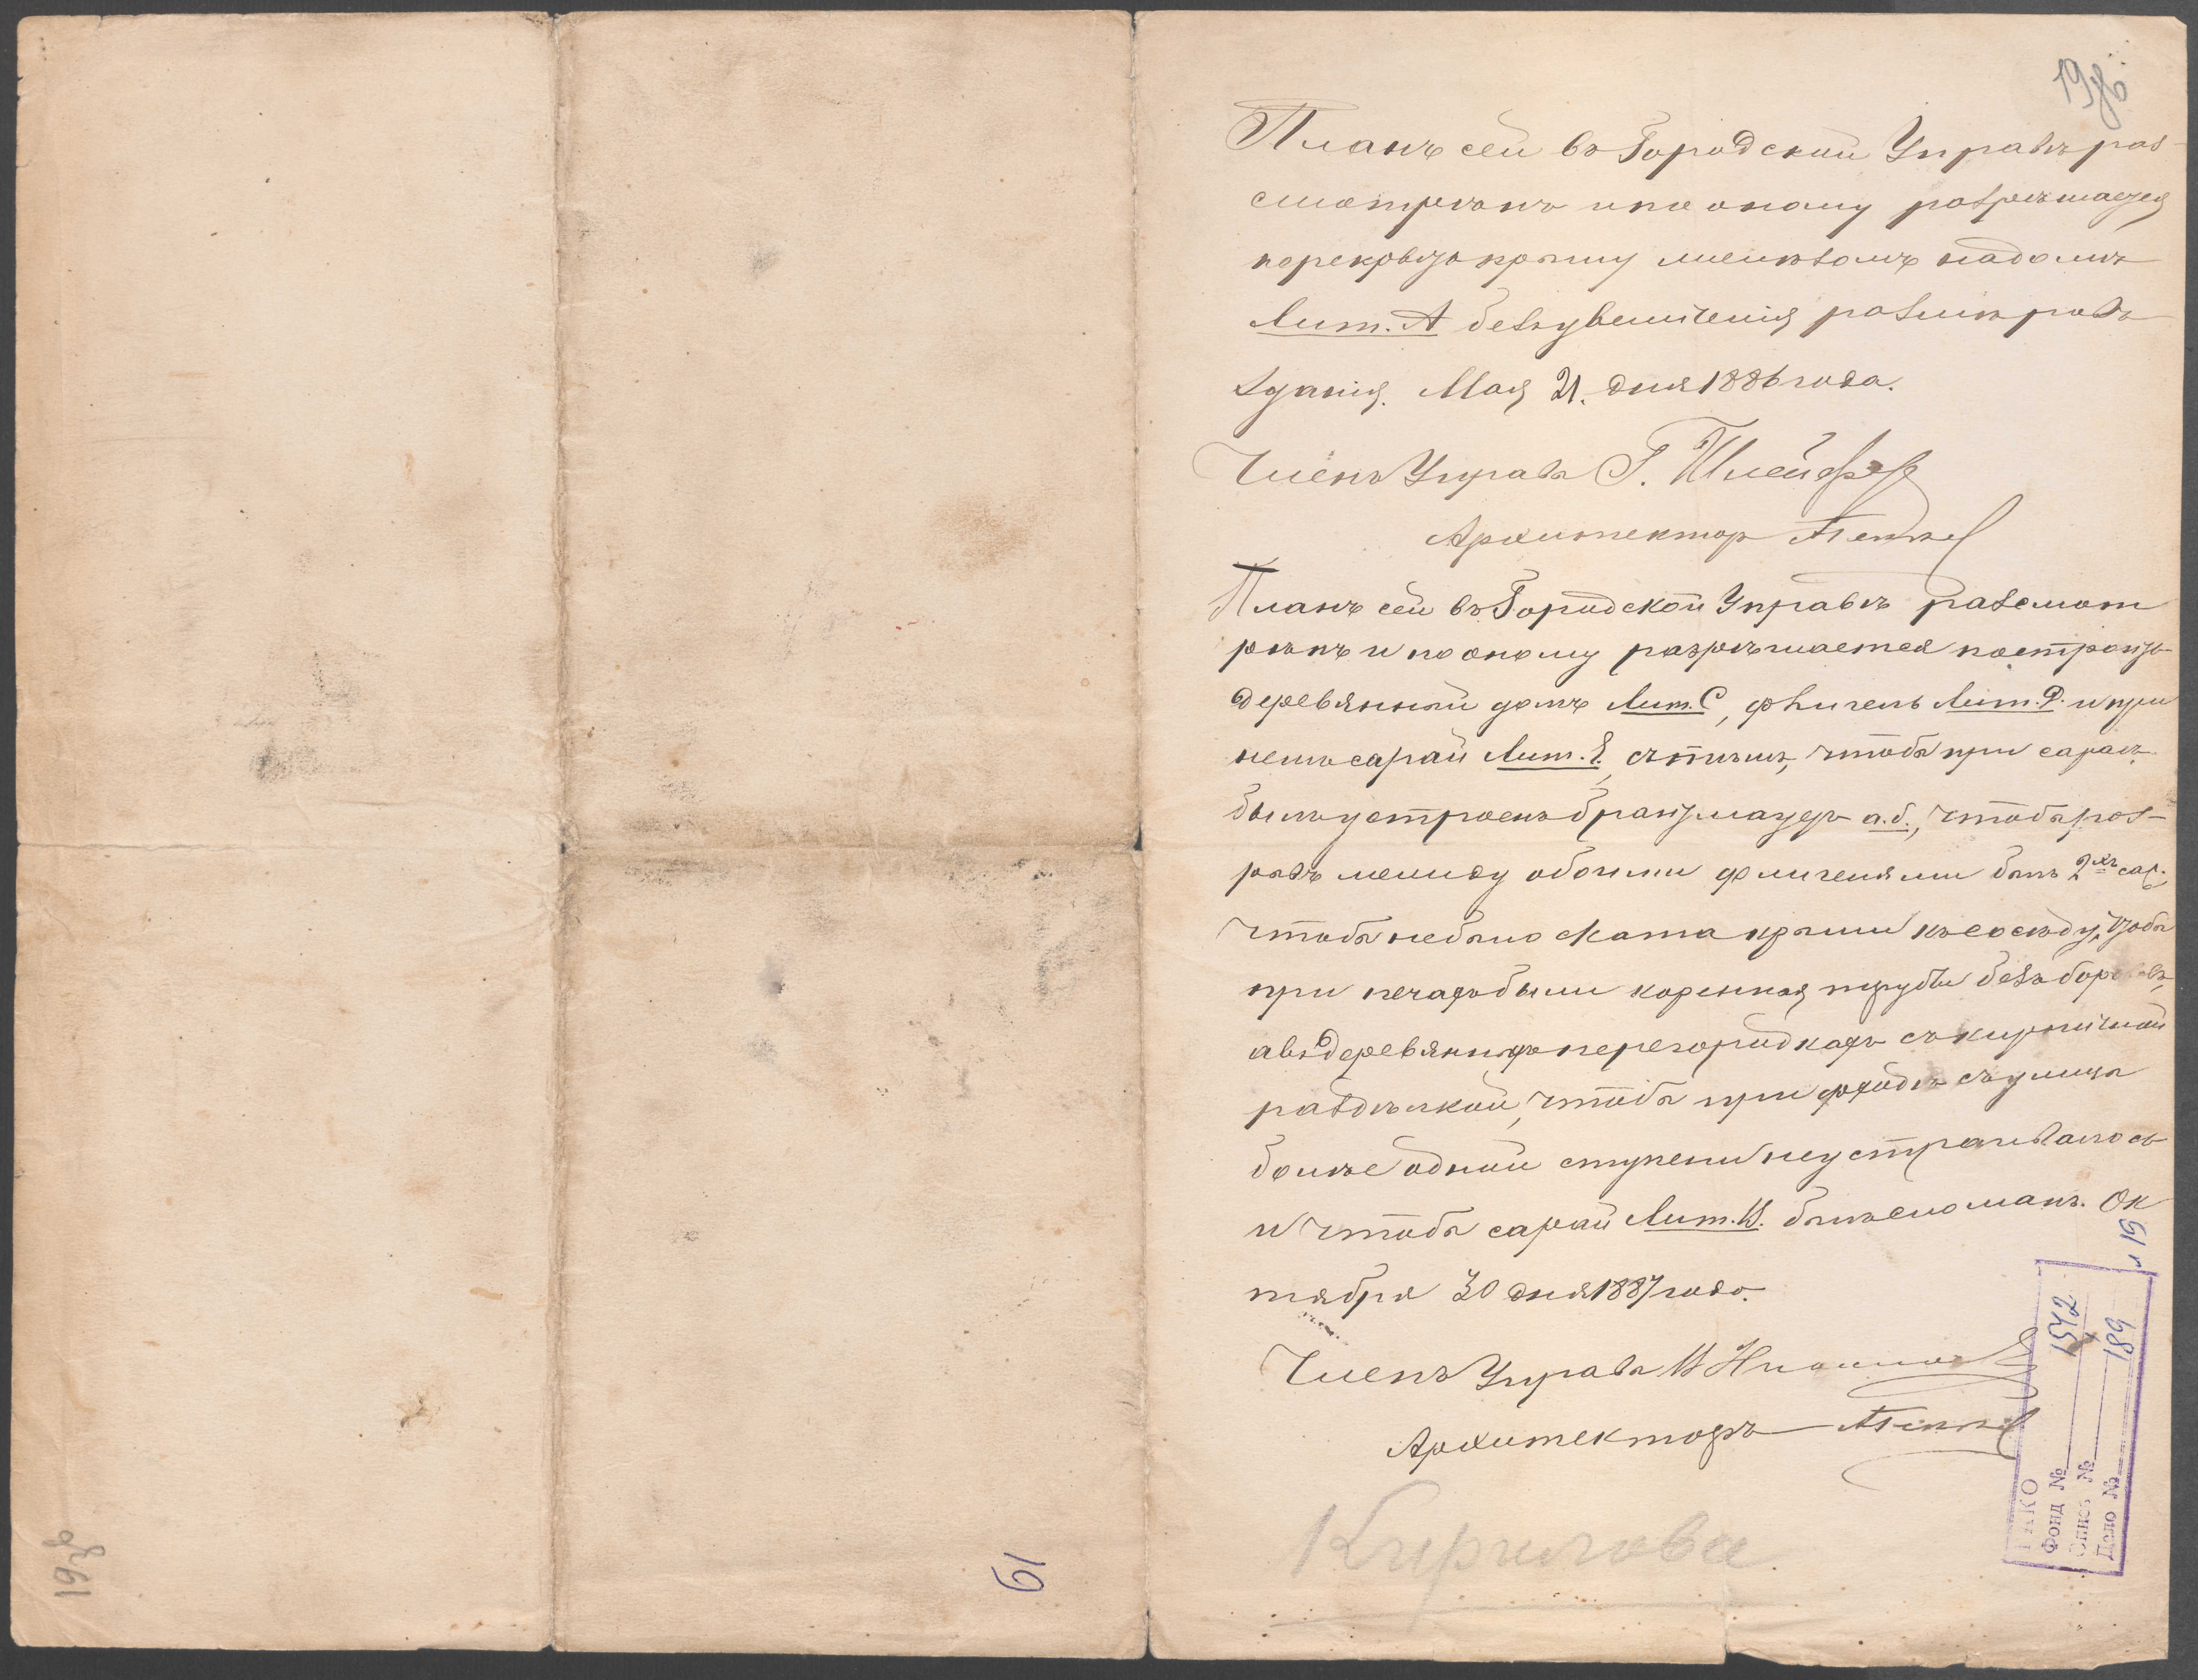 198
Планъ сей въ Городской Управѣ раз-
смотренъ и по оному разрешается
перекрыть крышу железомъ на домѣ
Лит. А безъ увеличенія размѣровъ
зданія. Мая 21. дня 1886 года.
Членъ Управы Г. Шлейфер
Архитектор
Планъ сей въ Городской Управѣ разсмот
рѣнъ и по оному разрѣшается построить
деревянный домъ Лит. С, флигель Лит. D. и при
немъ сарай Лит. Е. съ тѣмъ, чтобы при сараѣ
былъ устроенъ брантмауеръ а.б., чтобы раз-
рывъ между обоими флигелями былъ 2хъ саж.
чтобы не было ската крыши къ соседу, чтобы
при печахъ были коренныя трубы безъ борововъ,
а въ деревянныхъ перегородкахъ съ кирпичной
раздѣлкой, чтобы при входѣ съ улицы
болѣе одной ступени не устраивалось
и чтобы сарай Лит. В. былъ сломанъ. Ок
тября 30 дня 1887 года.
Членъ Управы
Архитекторъ
Кирилова
ГАКО
Фонд № 1542
Опись №
Дело № 189
л 19
19
198